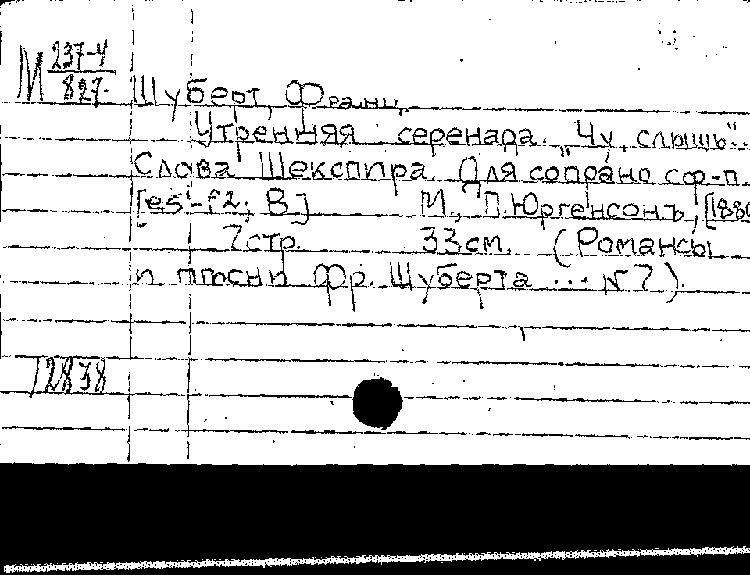 М 237-4
827
Шуберт, Франц.
Утренняя серенада. "Чу, слышь"..
Слова Шекспира. Для сопрано с ф-п.
[es¹-f2; В] М., П. Юргенсонъ, [188
7 стр. 33 см. (Романсы
и пѣсни Фр. Шуберта ... № 7).
12838